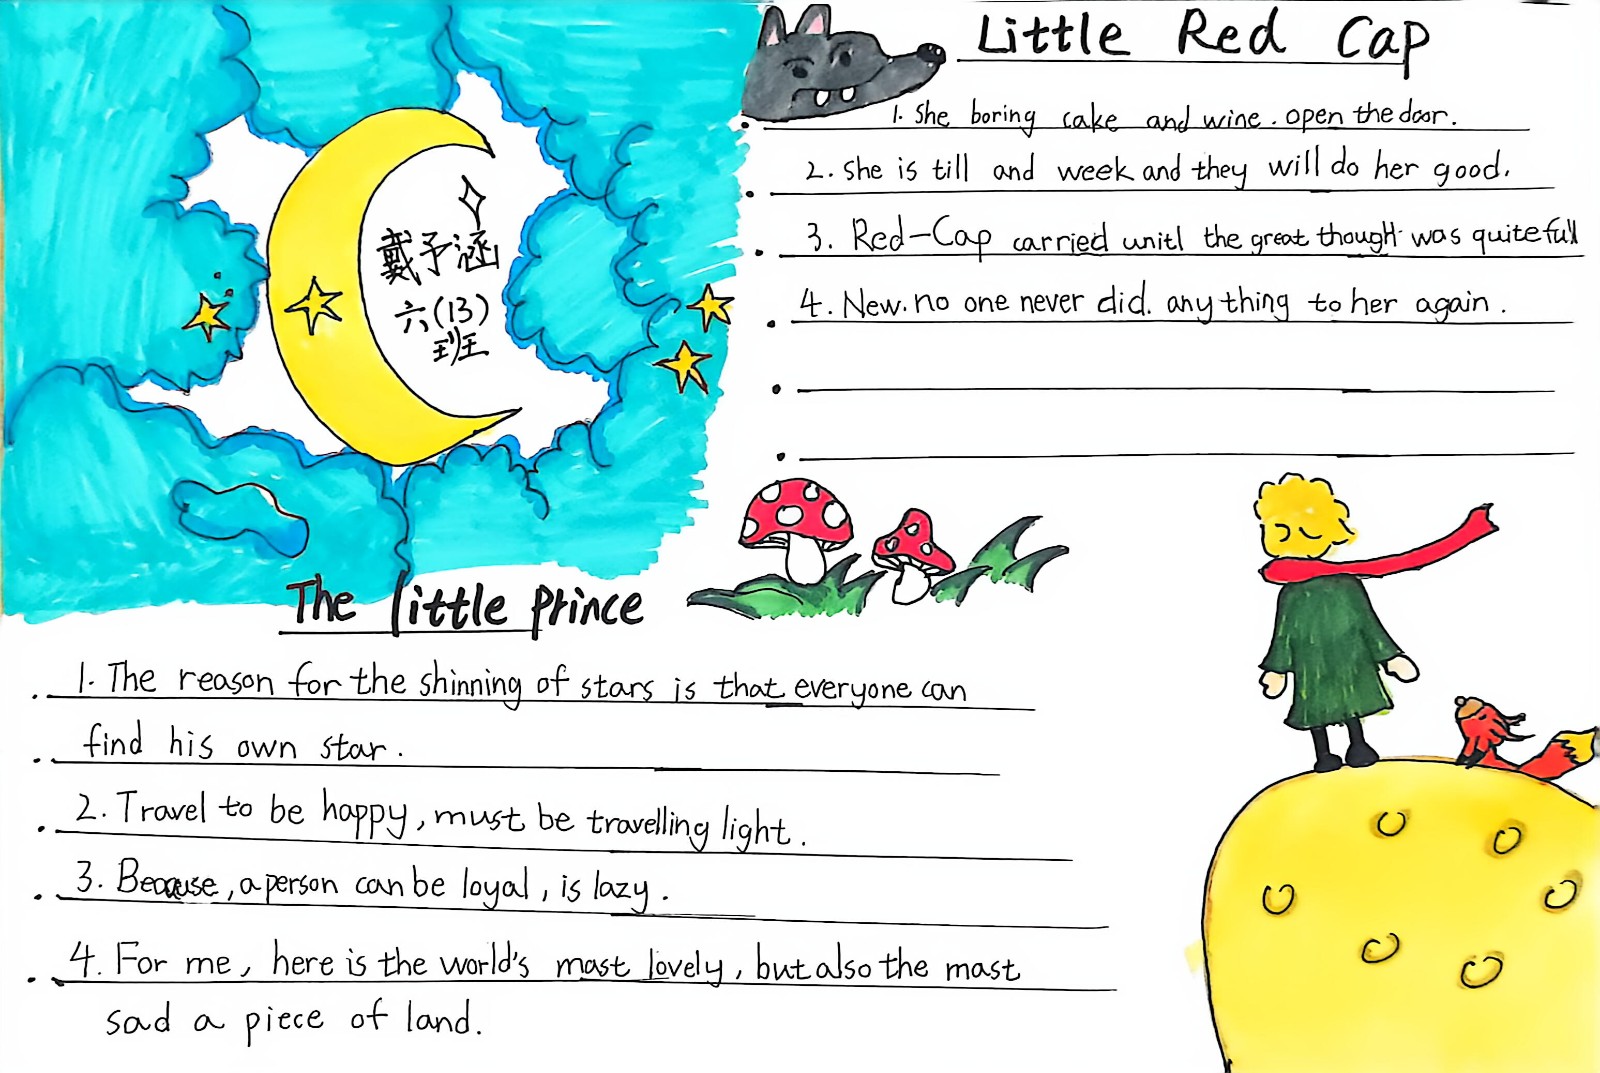 Little Red Cap
1. She boring cake and wine. open the door.
2. She is till and week and they will do her good.
3. Red-Cap carried unitl the great though was quite full
4. New. no one never did. any thing to her again.
戴予涵
六(13)
班
The little prince
1. The reason for the shinning of stars is that everyone can
find his own star.
2. Travel to be happy, must be travelling light.
3. Because, a person can be loyal, is lazy.
4. For me, here is the world's mast lovely, but also the mast
sad a piece of land.